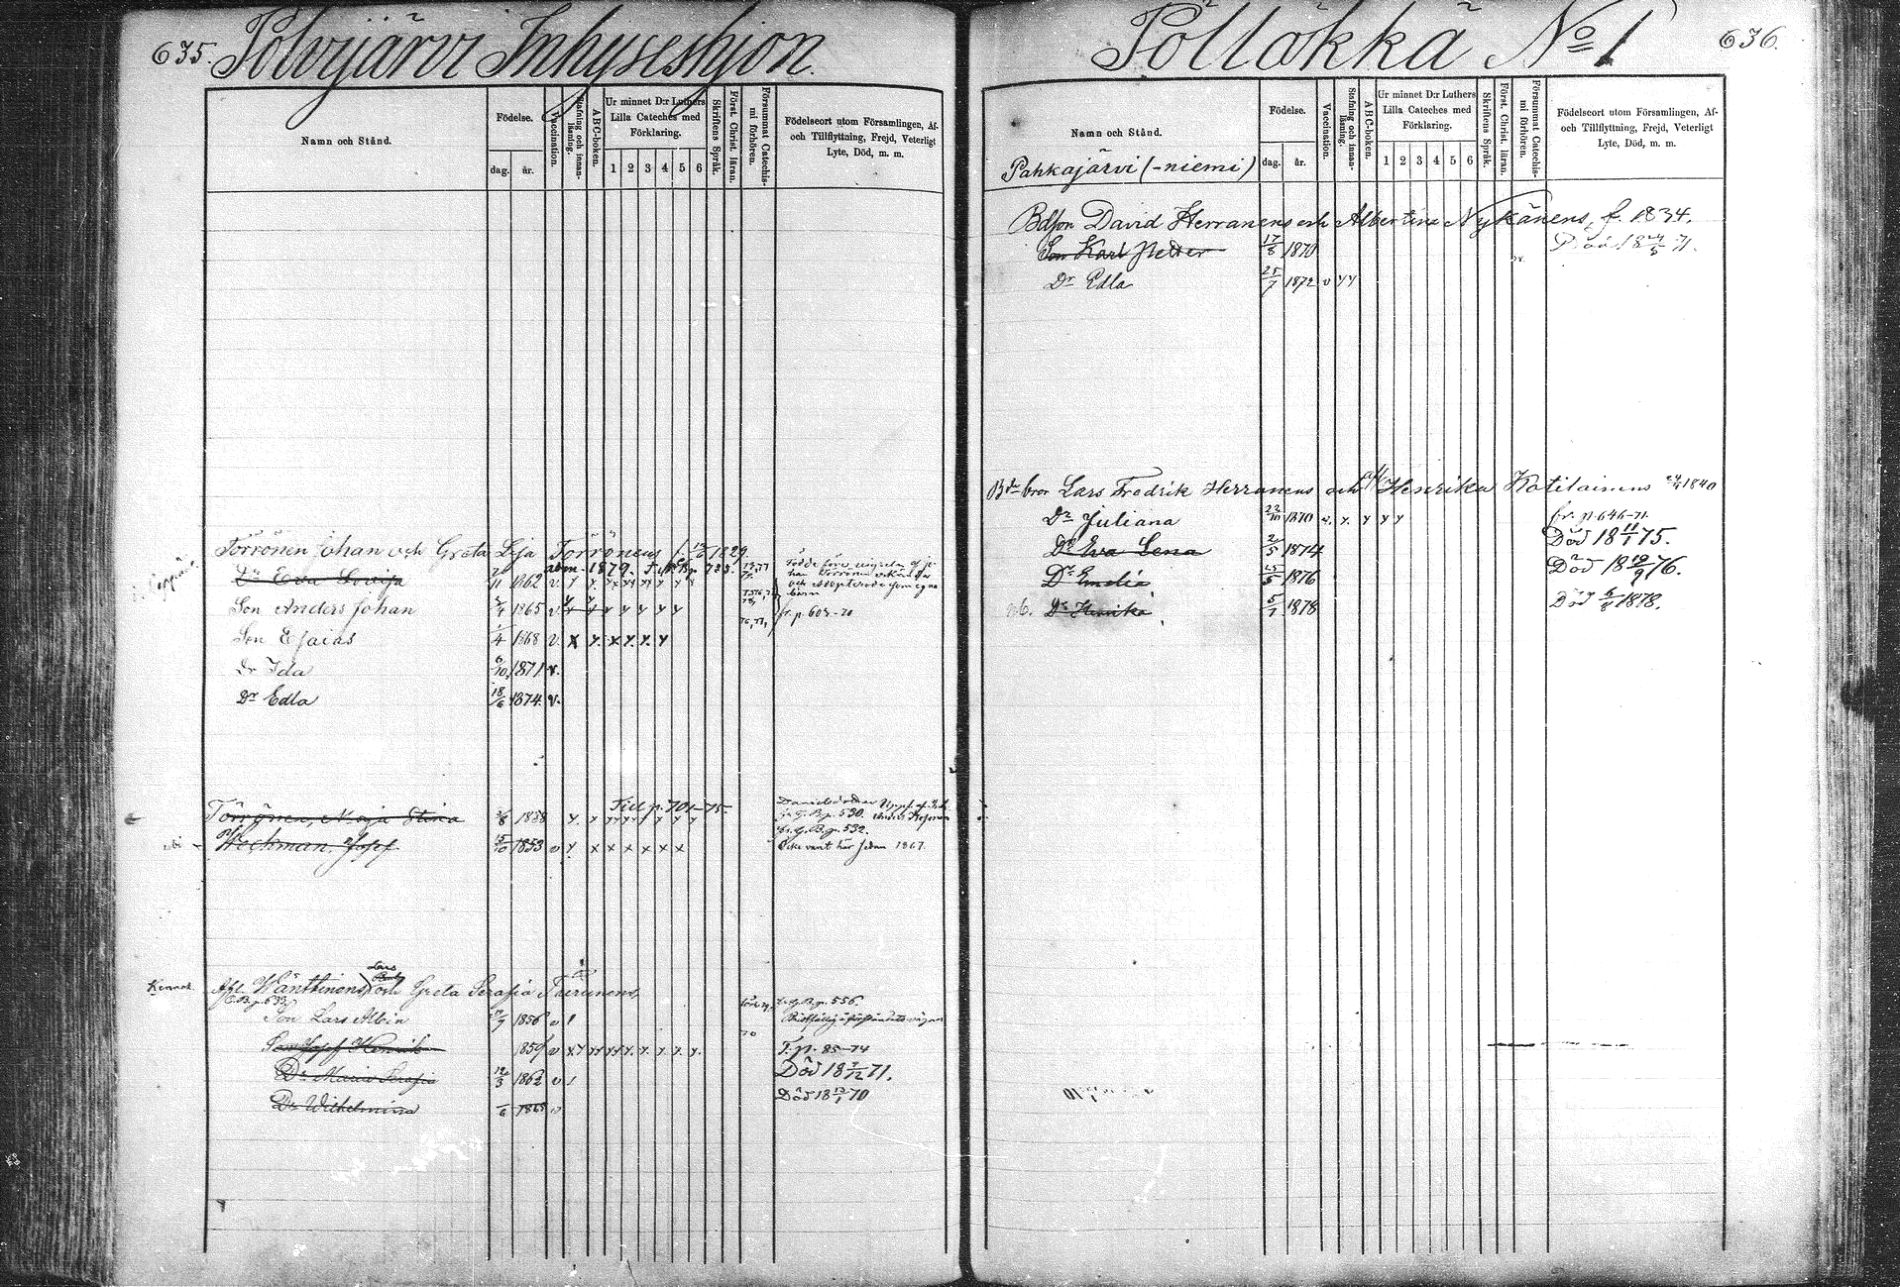 635. Polvijärvi Inhyseshjon.
Namn och Stånd.
Födelse.
dag. år.
Vaccination.
Stafning och innan-läsning.
ABC-boken.
Ur minnet D:r Luthers
Lilla Cateches med
Förklaring.
1 2 3 4 5 6
Skriftens Språk.
Först. Christ. läran.
Försummat Catechis-mi förhören.
Födelseort utom Församlingen, Af-
och Tillflyttning, Frejd, Veterligt
Lyte, Död, m. m.
Törrönen Johan och Greta Lisa Törrönens f. 1829
Dr Eva Lovisa 1862 v.
Son Anders Johan 1865 v. fr. p. 603-70
Son Esaias 1/4 1868 v.
Dr Ida 6/10 1871 v.
Dr Edla 18/6 1874 v.
Till p. 701-75.
Törrönen, Maja Stina 1838
fr. C.B. p. 530.
Josef 15/10 1853 v fr. C.B. p. 532.
Icke varit här sedan 1867.
Kinnok
Afl. Wänttinens Lars och Greta Serafia
C.B. p. 556.
Son Lars Albin 1856 v 1
Son Josef Henrik 1859 v T. p. 85-74
Dr Maria Serafia 12/3 1862 v 1 Död 18 7/12 71.
Dr Wilhelmina 1865 v Död 18 13/1 70
Pöllökkä No 1 636.
Namn och Stånd.
Pahkajärvi (-niemi)
Födelse.
dag. år.
Vaccination.
Stafning och innan-läsning.
ABC-boken.
Ur minnet D:r Luthers
Lilla Cateches med
Förklaring.
1 2 3 4 5 6
Skriftens Språk.
Först. Christ. läran.
Försummat Catechis-mi förhören.
Födelseort utom Församlingen, Af-
och Tillflyttning, Frejd, Veterligt
Lyte, Död, m. m.
Bdson David Herranens och Albertina Nykänens, f. 1834.
Son Karl Petter 17/8 1870 Död 18 71.
Dr Edla 25/7 1872 v y y
Bde bror Lars Fredrik Herranens och Henrika Kotilainens 1840
Dr Juliana 22/10 1870 v. y. y y y fr. p 646-71.
Dr Eva Lena 2/5 1874 Död 18 11/1 75.
Dr Emelia 25/5 1876 Död 18 19/9 76.
Dr Henrika 5/7 1878 Död 5/8 1878.